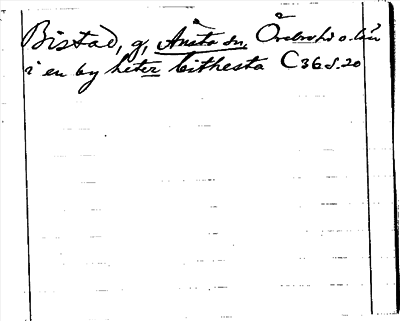 Bistad, g, Ånsta sn, Örebro hd o. län
i en by heter bithesta C 36 s. 20